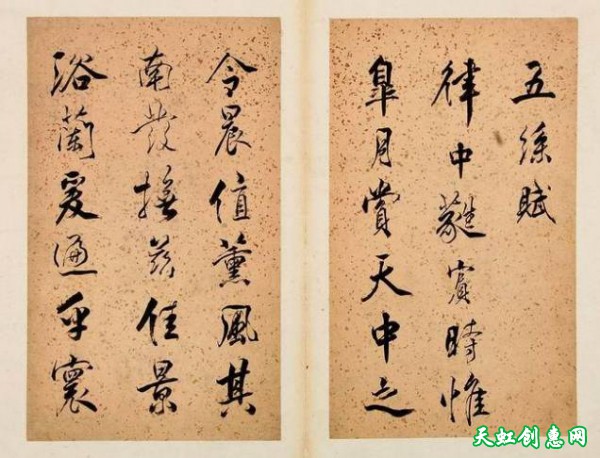 五絲賦
律中蕤賓時惟
皐月賞天中之
令晨值薰風其
南發撫茲佳景
浴蘭爰遍乎寰
天虹创惠网